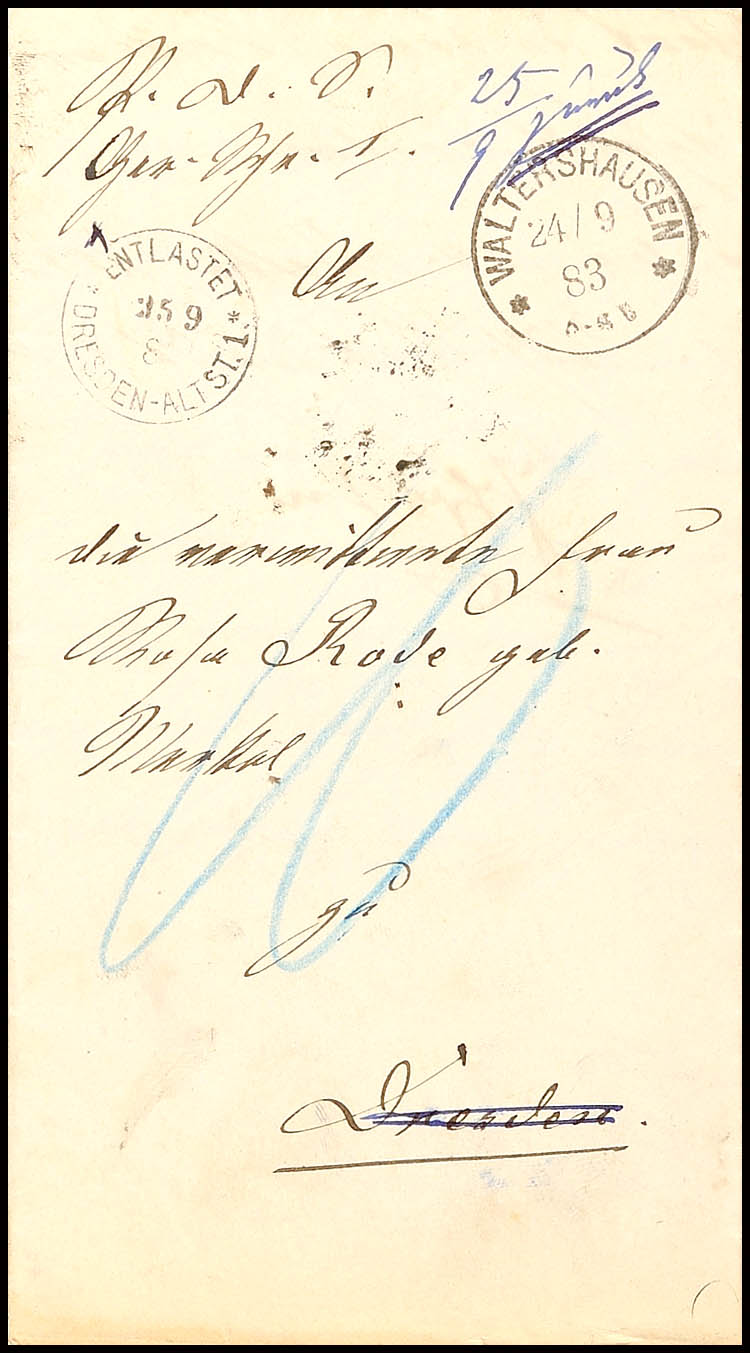 P. d. S.
Ger. Schr. I.
25
9 zurück
WALTERSHAUSEN
24/9
83
ENTLASTET
25 9
8
DRESDEN-ALTST. 1
An
die verwittwete Frau
Rosa Rode geb.
Merkel
zu
Dresden.